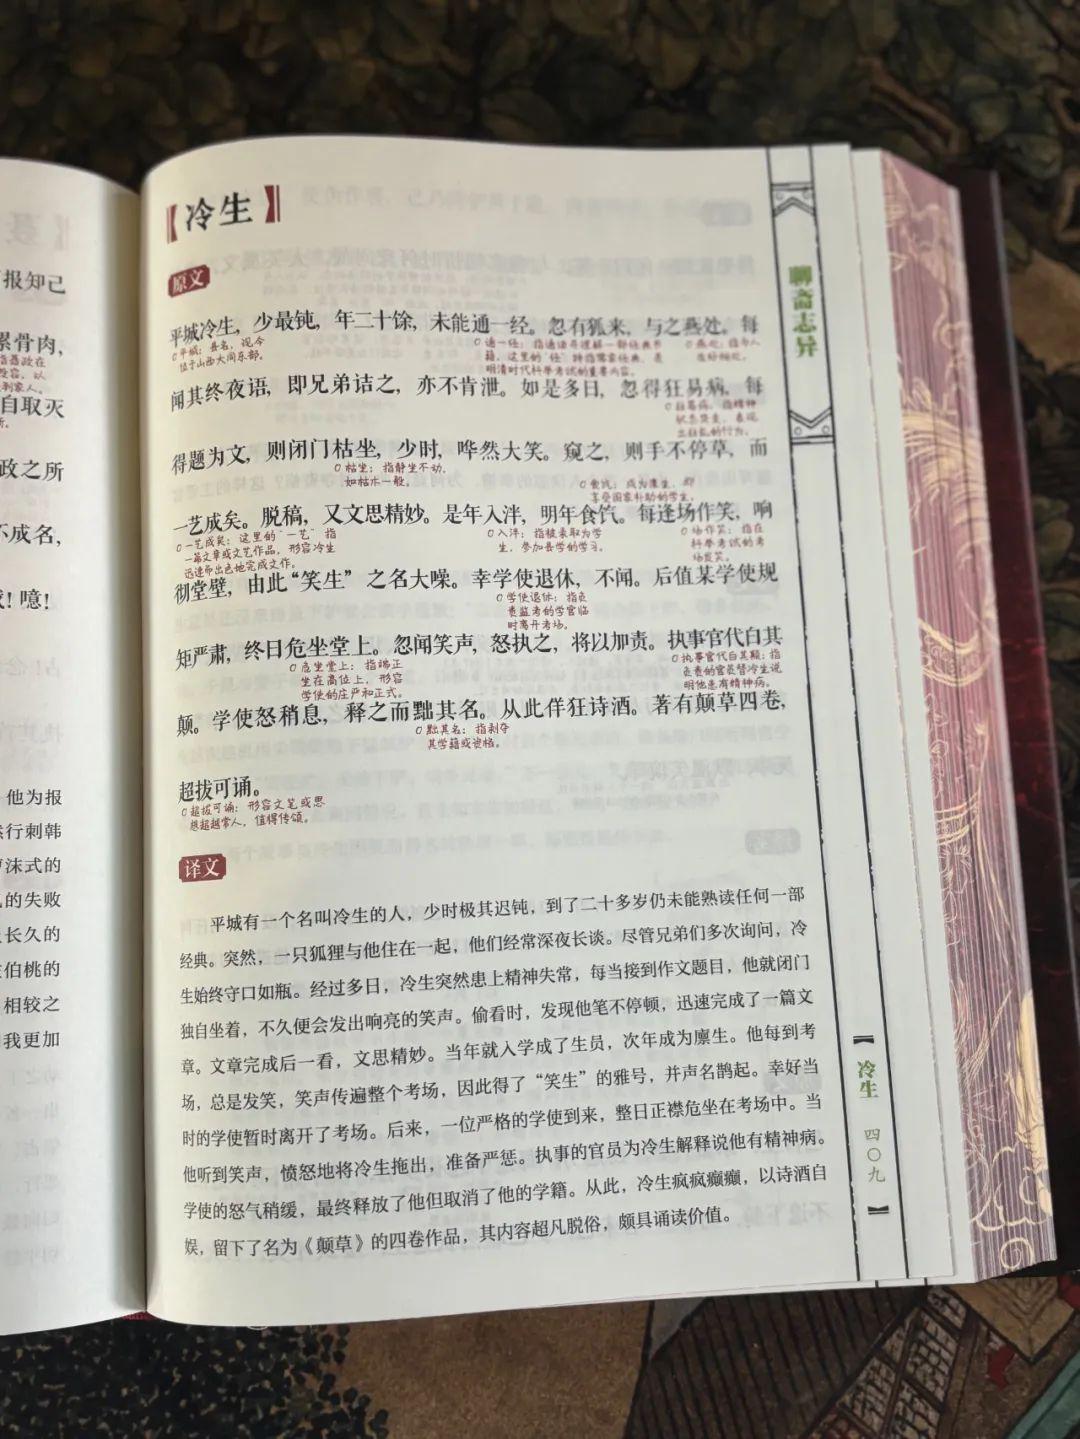 报知己
累骨肉，
自取灭
政之所
不成名，
！噫！
他为报
行刺韩
沫式的
的失败
长久的
伯桃的
相较之
我更加
【冷生】
原文
平城冷生，少最钝，年二十馀，未能通一经。忽有狐来，与之燕处。每
平城：县名，现今
位于山西大同东部。
闻其终夜语，即兄弟诘之，亦不肯泄。如是多日，忽得狂易病，每
狂易病：指精神
状态失常，表现
出狂乱的行为。
得题为文，则闭门枯坐，少时，哗然大笑。窥之，则手不停草，而
枯坐：指静坐不动，
如枯木一般。
食饩：成为廪生，即
享受国家补助的学生。
一艺成矣。脱稿，又文思精妙。是年入泮，明年食饩。每逢场作笑，响
一艺成矣：这里的“一艺”指
一篇文章或文艺作品，形容冷生
迅速而出色地完成文作。
入泮：指被录取为学
生，参加县学的学习。
场作笑：指在
科举考试的考
场发笑。
彻堂壁，由此“笑生”之名大噪。幸学使退休，不闻。后值某学使规
学使退休：指负
责监考的学官临
时离开考场。
矩严肃，终日危坐堂上。忽闻笑声，怒执之，将以加责。执事官代白其
危坐堂上：指端正
坐在高位上，形容
学使的庄严和正式。
执事官代白其颠：指
负责的官员替冷生说
明他患有精神病。
颠。学使怒稍息，释之而黜其名。从此佯狂诗酒。著有颠草四卷，
黜其名：指剥夺
其学籍或资格。
超拔可诵。
超拔可诵：形容文笔或思
想超越常人，值得传颂。
译文
平城有一个名叫冷生的人，少时极其迟钝，到了二十多岁仍未能熟读任何一部
经典。突然，一只狐狸与他住在一起，他们经常深夜长谈。尽管兄弟们多次询问，冷
生始终守口如瓶。经过多日，冷生突然患上精神失常，每当接到作文题目，他就闭门
独自坐着，不久便会发出响亮的笑声。偷看时，发现他笔不停顿，迅速完成了一篇文
章。文章完成后一看，文思精妙。当年就入学成了生员，次年成为廪生。他每到考
场，总是发笑，笑声传遍整个考场，因此得了“笑生”的雅号，并声名鹊起。幸好当
时的学使暂时离开了考场。后来，一位严格的学使到来，整日正襟危坐在考场中。当
他听到笑声，愤怒地将冷生拖出，准备严惩。执事的官员为冷生解释说他有精神病。
学使的怒气稍缓，最终释放了他但取消了他的学籍。从此，冷生疯疯癫癫，以诗酒自
娱，留下了名为《颠草》的四卷作品，其内容超凡脱俗，颇具诵读价值。
聊斋志异
【冷生 四〇九】